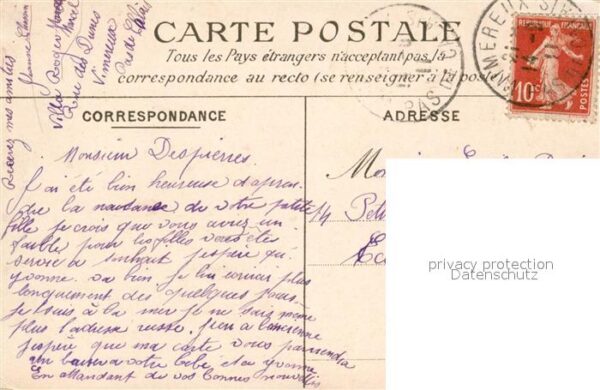 CARTE POSTALE
Tous les Pays étrangers n'acceptent pas la
correspondance au recto (se renseigner à la poste)
CORRESPONDANCE
ADRESSE
REPUBLIQUE FRANÇAISE
10c
POSTES
PAS DE CALAIS
Recevez mes amitiés
Villa Roger
Rue des Dunes
Vimereux
Pas de Calais
Monsieur Despierres.
J'ai été bien heureuse d'appren
dre la naissance de votre petite
fille je crois que vous avez un
faible pour les filles vous êtes
servie à souhait j'espère qu'
yvonne va bien je lui écrirai plus
longuement des quelques jours
je suis à la mer je ne sais même
plus l'adresse
j'espère que ma carte vous parviendra
votre bébé et yvonne
En attendant de vos bonnes nouvelles
14
privacy protection
Datenschutz